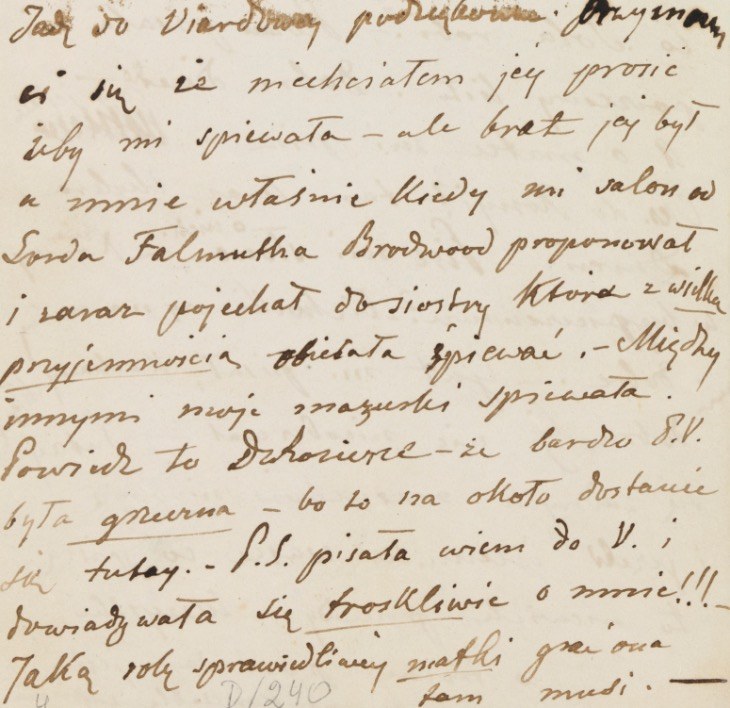 Jadę do Viardowey podziękować. Przyznam
ci się że niechciałem jéj prosić
żeby mi spiewała – ale brat jej był
u mnie właśnie kiedy mi salon od
Lorda Falmutha Brodwood proponował
i zaraz pojechał do siostry która z wielką
przyjemnoscia obiecała śpiewać. – Między
innymi moje mazurki spiewała.
Powiedz to Dzkoziesze – że bardzo P.V.
była grzeczna – bo to na około dostanie
się tutay. – P.S. pisała wiem do V. i
dowiadywała się troskliwie o mnie!!! –
Jaką rolę sprawiedliwey matki grać ona
tam musi. —
D/240